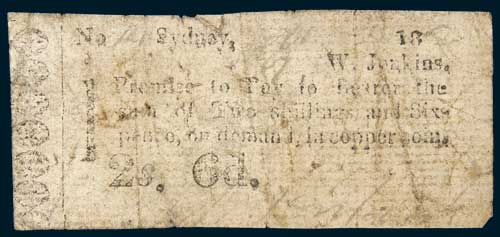 No Sydney, 18
W. Jenkins,
Promise to Pay to Bearer the
sum of Two shillings and Six-
pence, on demand, in copper coin,
2s. 6d.